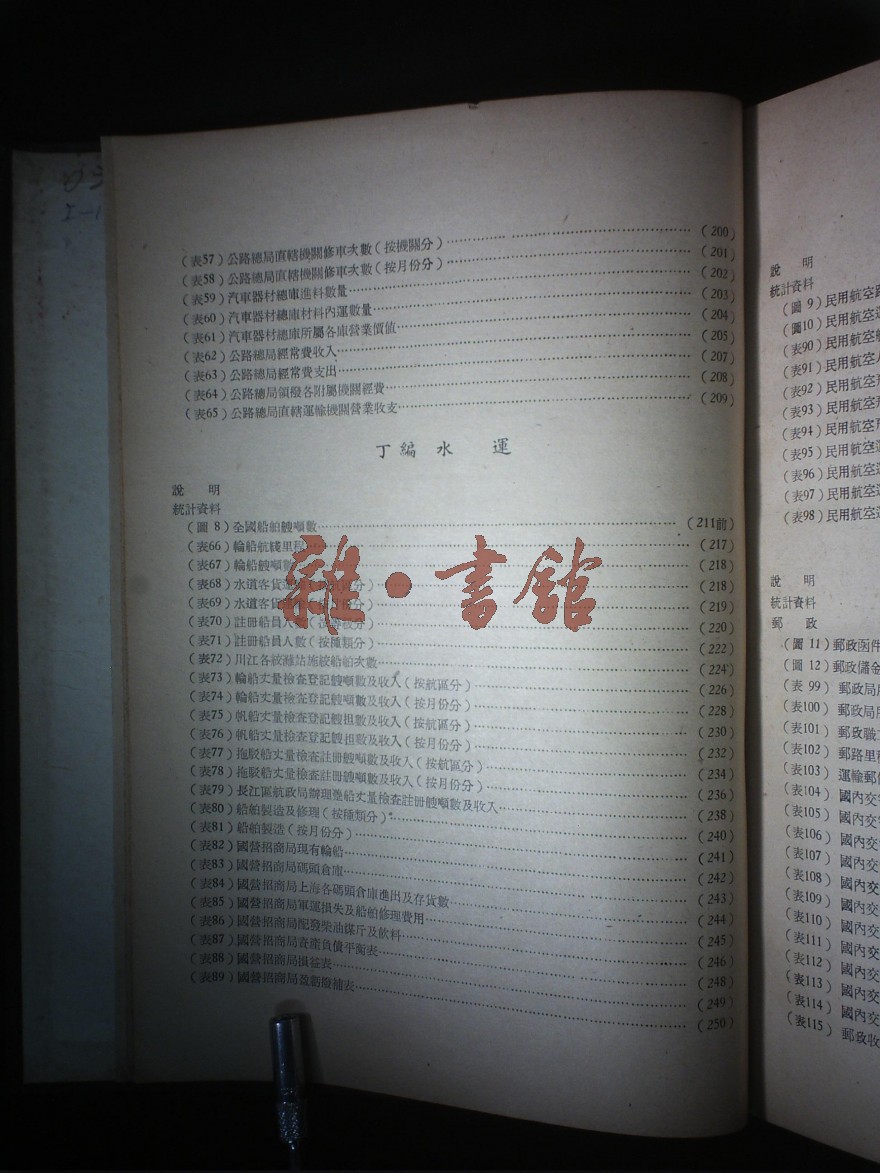 (表57)公路總局直轄機關修車次數(按機關分)……(200)
(表58)公路總局直轄機關修車次數(按月份分)……(201)
(表59)汽車器材總庫進料數量……(202)
(表60)汽車器材總庫材料內運數量……(203)
(表61)汽車器材總庫所屬各庫營業價值……(204)
(表62)公路總局經常費收入……(205)
(表63)公路總局經常費支出……(207)
(表64)公路總局領撥各附屬機關經費……(208)
(表65)公路總局直轄運輸機關營業收支……(209)
丁編 水 運
說 明
統計資料
(圖 8)全國船舶艘噸數……(211前)
(表66)輪船航綫里程……(217)
(表67)輪船艘噸數……(218)
(表68)水道客貨運 分)……(218)
(表69)水道客貨運 份分)……(219)
(表70)註冊船員人數( 分)……(220)
(表71)註冊船員人數(按種類分)……(222)
(表72)川江各絞灘站施絞船舶次數……(224)
(表73)輪船丈量檢查登記艘噸數及收入(按航區分)……(226)
(表74)輪船丈量檢查登記艘噸數及收入(按月份分)……(228)
(表75)帆船丈量檢查登記艘担數及收入(按航區分)……(230)
(表76)帆船丈量檢查登記艘担數及收入(按月份分)……(232)
(表77)拖駁船丈量檢查註冊艘噸數及收入(按航區分)……(234)
(表78)拖駁船丈量檢查註冊艘噸數及收入(按月份分)……(236)
(表79)長江區航政局辦理躉船丈量檢查註冊艘噸數及收入……(238)
(表80)船舶製造及修理(按種類分)……(240)
(表81)船舶製造(按月份分)……(241)
(表82)國營招商局現有輪船……(242)
(表83)國營招商局碼頭倉庫……(243)
(表84)國營招商局上海各碼頭倉庫進出及存貨數……(244)
(表85)國營招商局軍運損失及船舶修理費用……(245)
(表86)國營招商局配發柴油煤斤及飲料……(246)
(表87)國營招商局資產負債平衡表……(248)
(表88)國營招商局損益表……(249)
(表89)國營招商局盈虧撥補表……(250)
雜·書館
說 明
統計資料
(圖 9)民用航空
(圖10)民用航空
(表90)民用航空
(表91)民用航空
(表92)民用航空
(表93)民用航空
(表94)民用航空
(表95)民用航空
(表96)民用航空
(表97)民用航空
(表98)民用航空
說 明
統計資料
郵 政
(圖 11)郵政函件
(圖 12)郵政儲金
(表 99)郵政局
(表100)郵政局
(表101)郵政職
(表102)郵路里程
(表103)運輸郵
(表104)國內交
(表105)國內交
(表106)國內交
(表107)國內交
(表108)國內交
(表109)國內交
(表110)國內交
(表111)國內交
(表112)國內交
(表113)國內交
(表114)國內交
(表115)郵政收